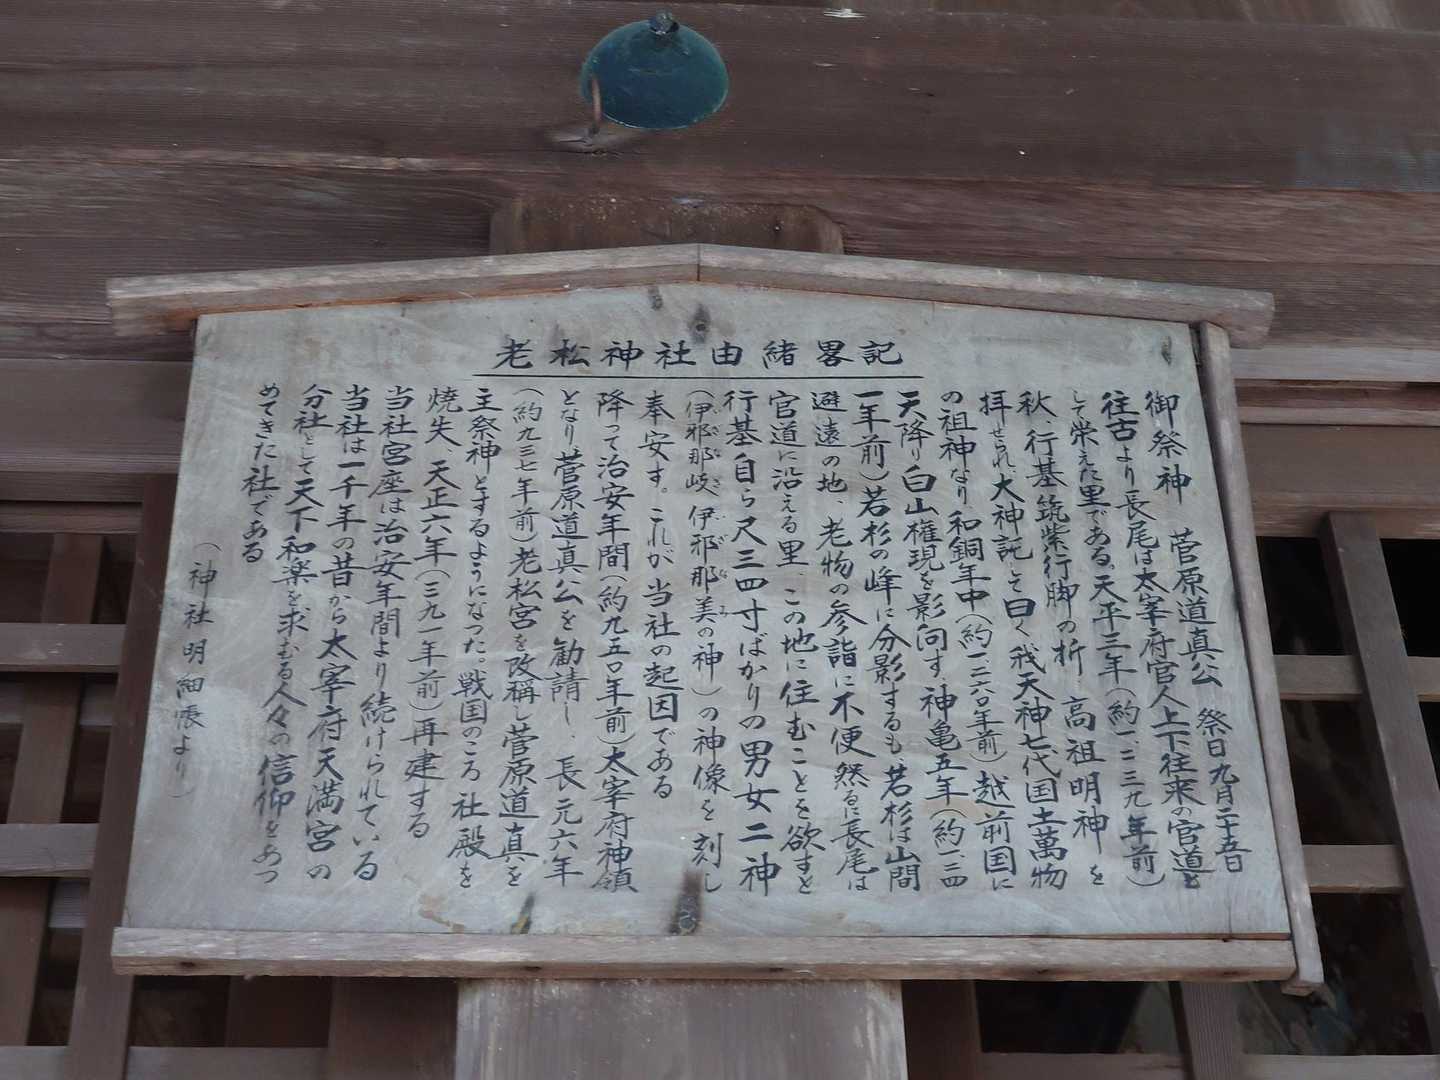 老松神社由緒畧記
御祭神　菅原道真公　祭日九月二十五日
往古より長尾は太宰府官人上下往来の官道と
して栄えた里である。天平三年（約一、二三九年前）
秋、行基筑紫行脚の折、高祖明神を
拝せられ、大神託して曰く我天神七代国土萬物
の祖神なり和銅年中（約一、二六〇年前）越前国に
天降り白山権現を影向す、神亀五年（約一、二四
一年前）若杉の峰に分影するも、若杉は山間
避遠の地　老物の参詣に不便　然るに長尾は
官道に沿える里、この地に住むことを欲すと
行基自ら尺三四寸ばかりの男女二神
（伊邪那岐　伊邪那美の神）の神像を刻し
奉安す。これが当社の起因である
降って治安年間（約九五〇年前）太宰府神領
となり、菅原道真公を勧請し、長元六年
（約九三七年前）老松宮を改稱し菅原道真を
主祭神とするようになった。戦国のころ社殿を
焼失、天正六年（三九一年前）再建する
当社宮座は治安年間より続けられている
当社は一千年の昔から太宰府天満宮の
分社として天下和楽を求むる人々の信仰をあつ
めてきた社である
（神社明細帳より）